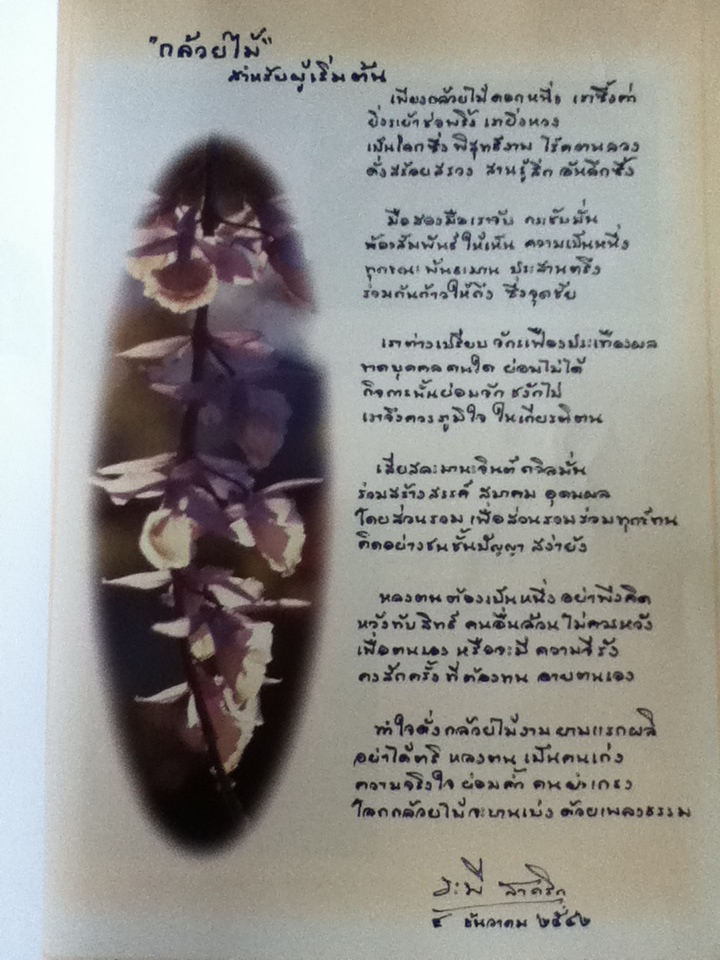 "กล้วยไม้"
สำหรับผู้เริ่มต้น
เพียงกล้วยไม้ดอกหนึ่ง เราซึ้งค่า
ยิ่งระย้าช่อพริ้ง เรายิ่งหวง
เป็นโลกซึ่ง พิสุทธิ์งาม ไร้ความลวง
ดั่งสร้อยสรวง สานรู้สึก อันลึกซึ้ง
มือสองมือเราจับ กระชับมั่น
พ้องสัมพันธ์ ให้เห็น ความเป็นหนึ่ง
ทุกขณะ พันธะมาน ประสานตรึง
ร่วมกันก้าวให้ถึง ซึ่งจุดชัย
เราต่างเปรียบ จักรเฟืองประเทืองผล
ขาดบุคคล คนใด ย่อมไม่ได้
กิจการนั้นย่อมจัก ชงักไป
เราจึงควรภูมิใจ ในเกียรติตน
เสียสละมานะจินต์ ถวิลมั่น
ร่วมสร้างสรรค์ สมาคม อุดมผล
โดยส่วนรวม เพื่อส่วนรวมร่วมทุกข์ทน
คิดอย่างชนชั้นปัญญา สง่ายัง
หลงตน ต้องเป็นหนึ่ง อย่าพึงคิด
หวังทับสิทธิ์ คนอื่นล้วน ไม่ควรหวัง
เพื่อตนเอง หรือจะมี ความจีรัง
คงสักครั้ง ที่ต้องทน อายตนเอง
ทำใจดั่งกล้วยไม้งาม ยามแรกผลิ
อย่าได้ตริ หลงตน เป็นคนเก่ง
ความจริงใจ ย่อมค้ำ คนยำเกรง
โลกกล้วยไม้จะบานเบ่ง ด้วยเพลงธรรม
ระพี สาคริก
๕ ธันวาคม ๒๕๔๒